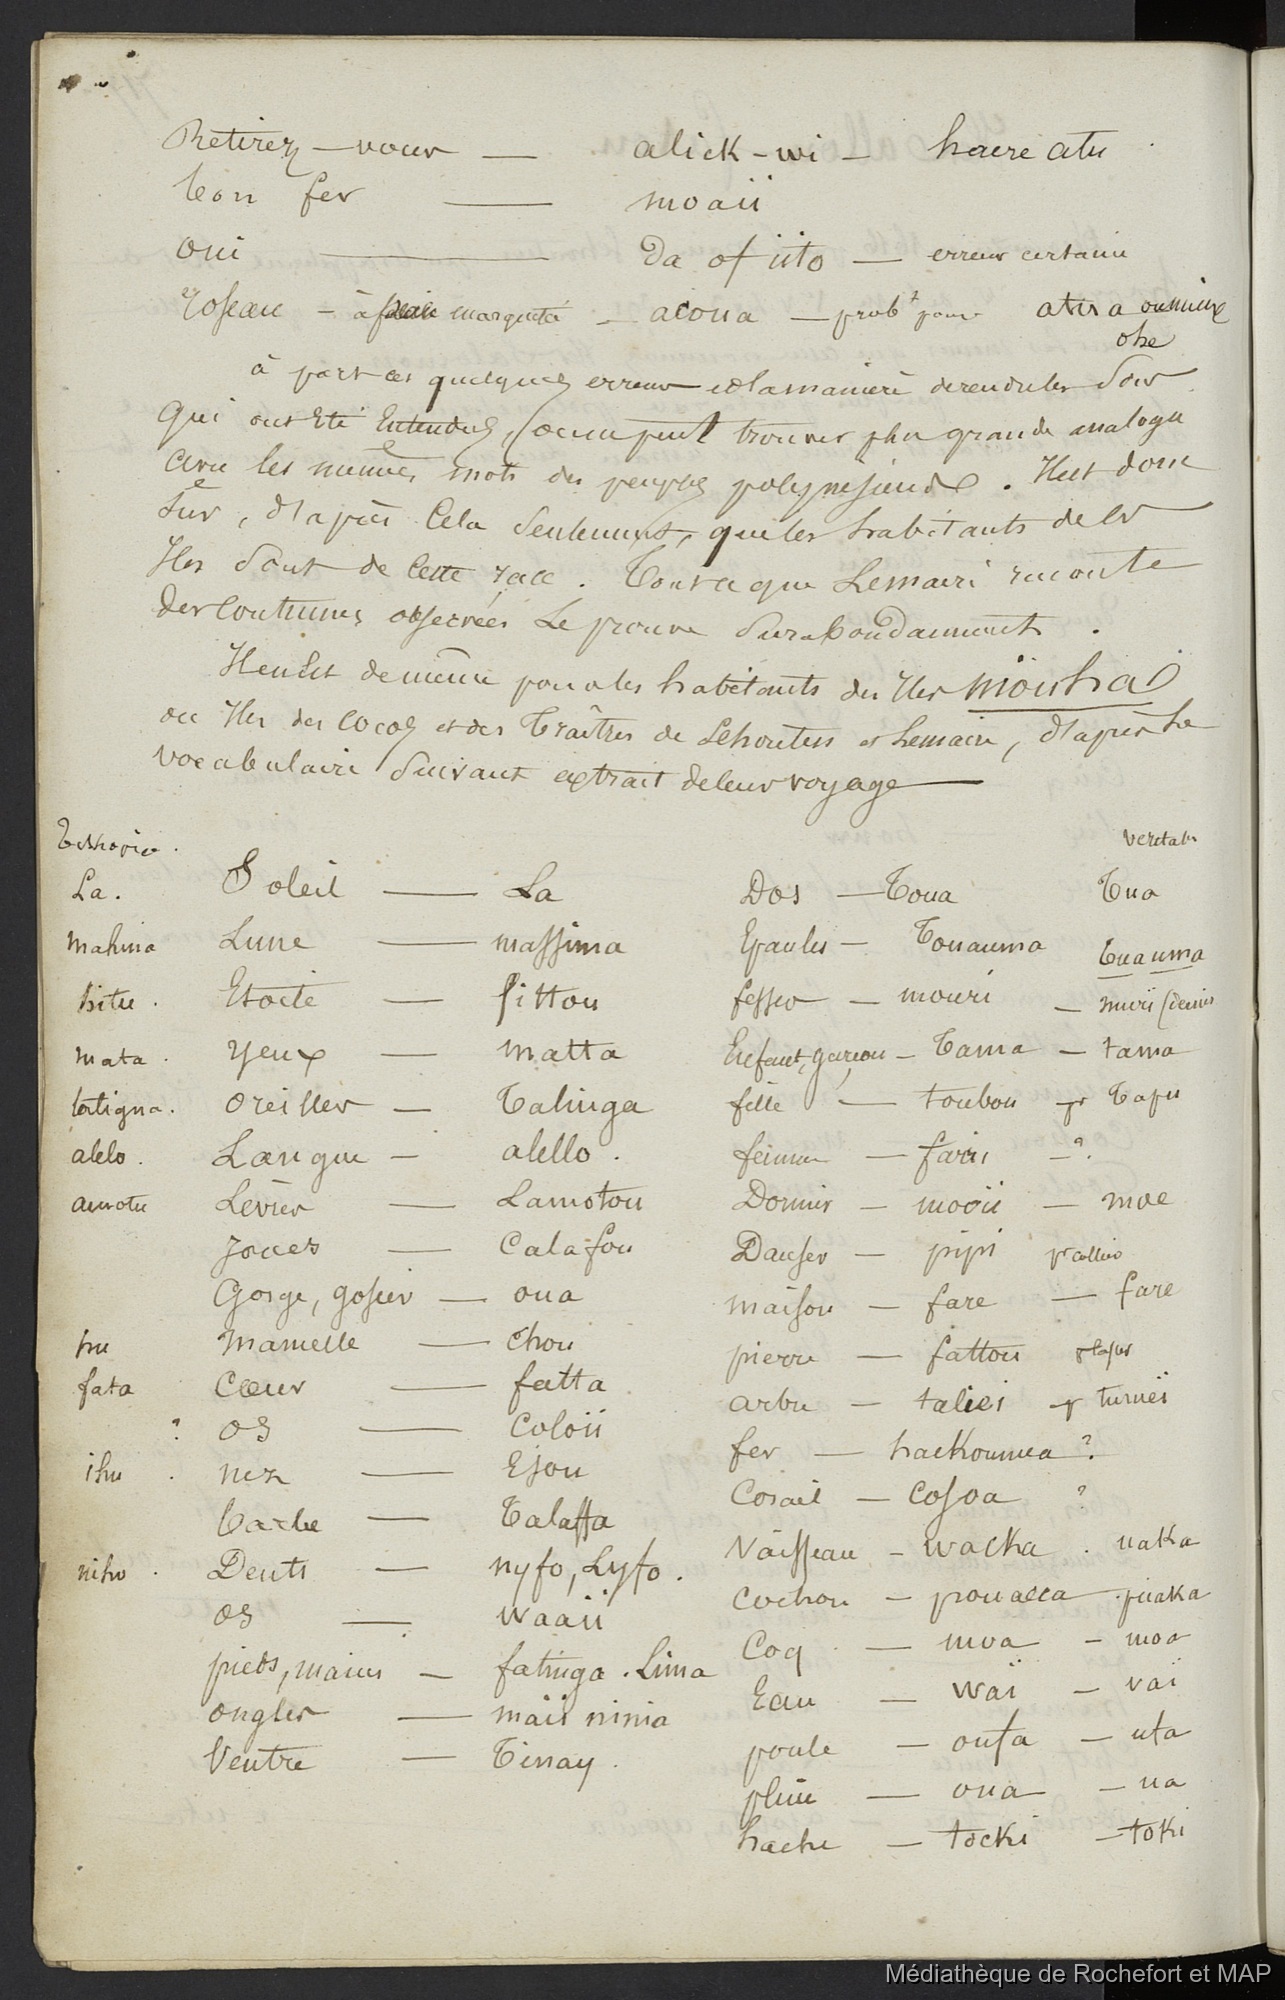 Retirez-vous — alick-wi — haere atu
bon fer — moaii
oui — da of iito — erreur certaine
roseau — à peine marqueté — acoua — probt pour atu a ou mieux
ohe
à part ces quelques erreurs et la manière de rendre les sons
qui ont été entendus, on ne peut trouver plus grande analogie
avec les mêmes mots des peuples polynésiens. Il est donc
sûr, d'après cela seulement, que les habitants de ces
Iles sont de cette race. Tout ce que Lemaire raconte
des coutumes observées le prouve surabondamment.
Il en est de même pour les habitants des Iles
ou Iles des Cocos et des Traîtres de Schouten et Lemaire, d'après le
vocabulaire suivant extrait de leur voyage
La. Soleil — La
mahina Lune — massima
hitu. Etoile — fittou
mata. yeux — matta
oreilles — Talinga
alelo. Langue — alello.
Lèvres — Lamotou
Joues — Calafou
Gorge, gosier — oua
hu mamelle — chou
fata Cœur — fatta
? os — Coloii
ihu. nez — Ejou
barbe — Talaffa
niho. Dents — nyfo, Lyfo.
os — waaii
pieds, mains — fatinga. Lima
ongles — maii ninia
Ventre — Tinay.
veritab
Dos — Toua Tua
Epaules — Touauma Tuauma
fesses — mouri — muri
Enfant, garçon — Tama — tama
fille — toubou pr Tapu
femme — — ?
Dormir — mooii — moe
Danser — pipi
maison — fare — fare
pierre — fattou
arbre — taliei pr
fer — hackoumea ?
Corail — Cosoa ?
Vaisseau — wacka. uaka
cochon — pouacca. puaka
Coq — moa — moa
Eau — waï — vaï
poule — oufa — ufa
pluie — oua — ua
hache — tocki — toki
Médiathèque de Rochefort et MAP